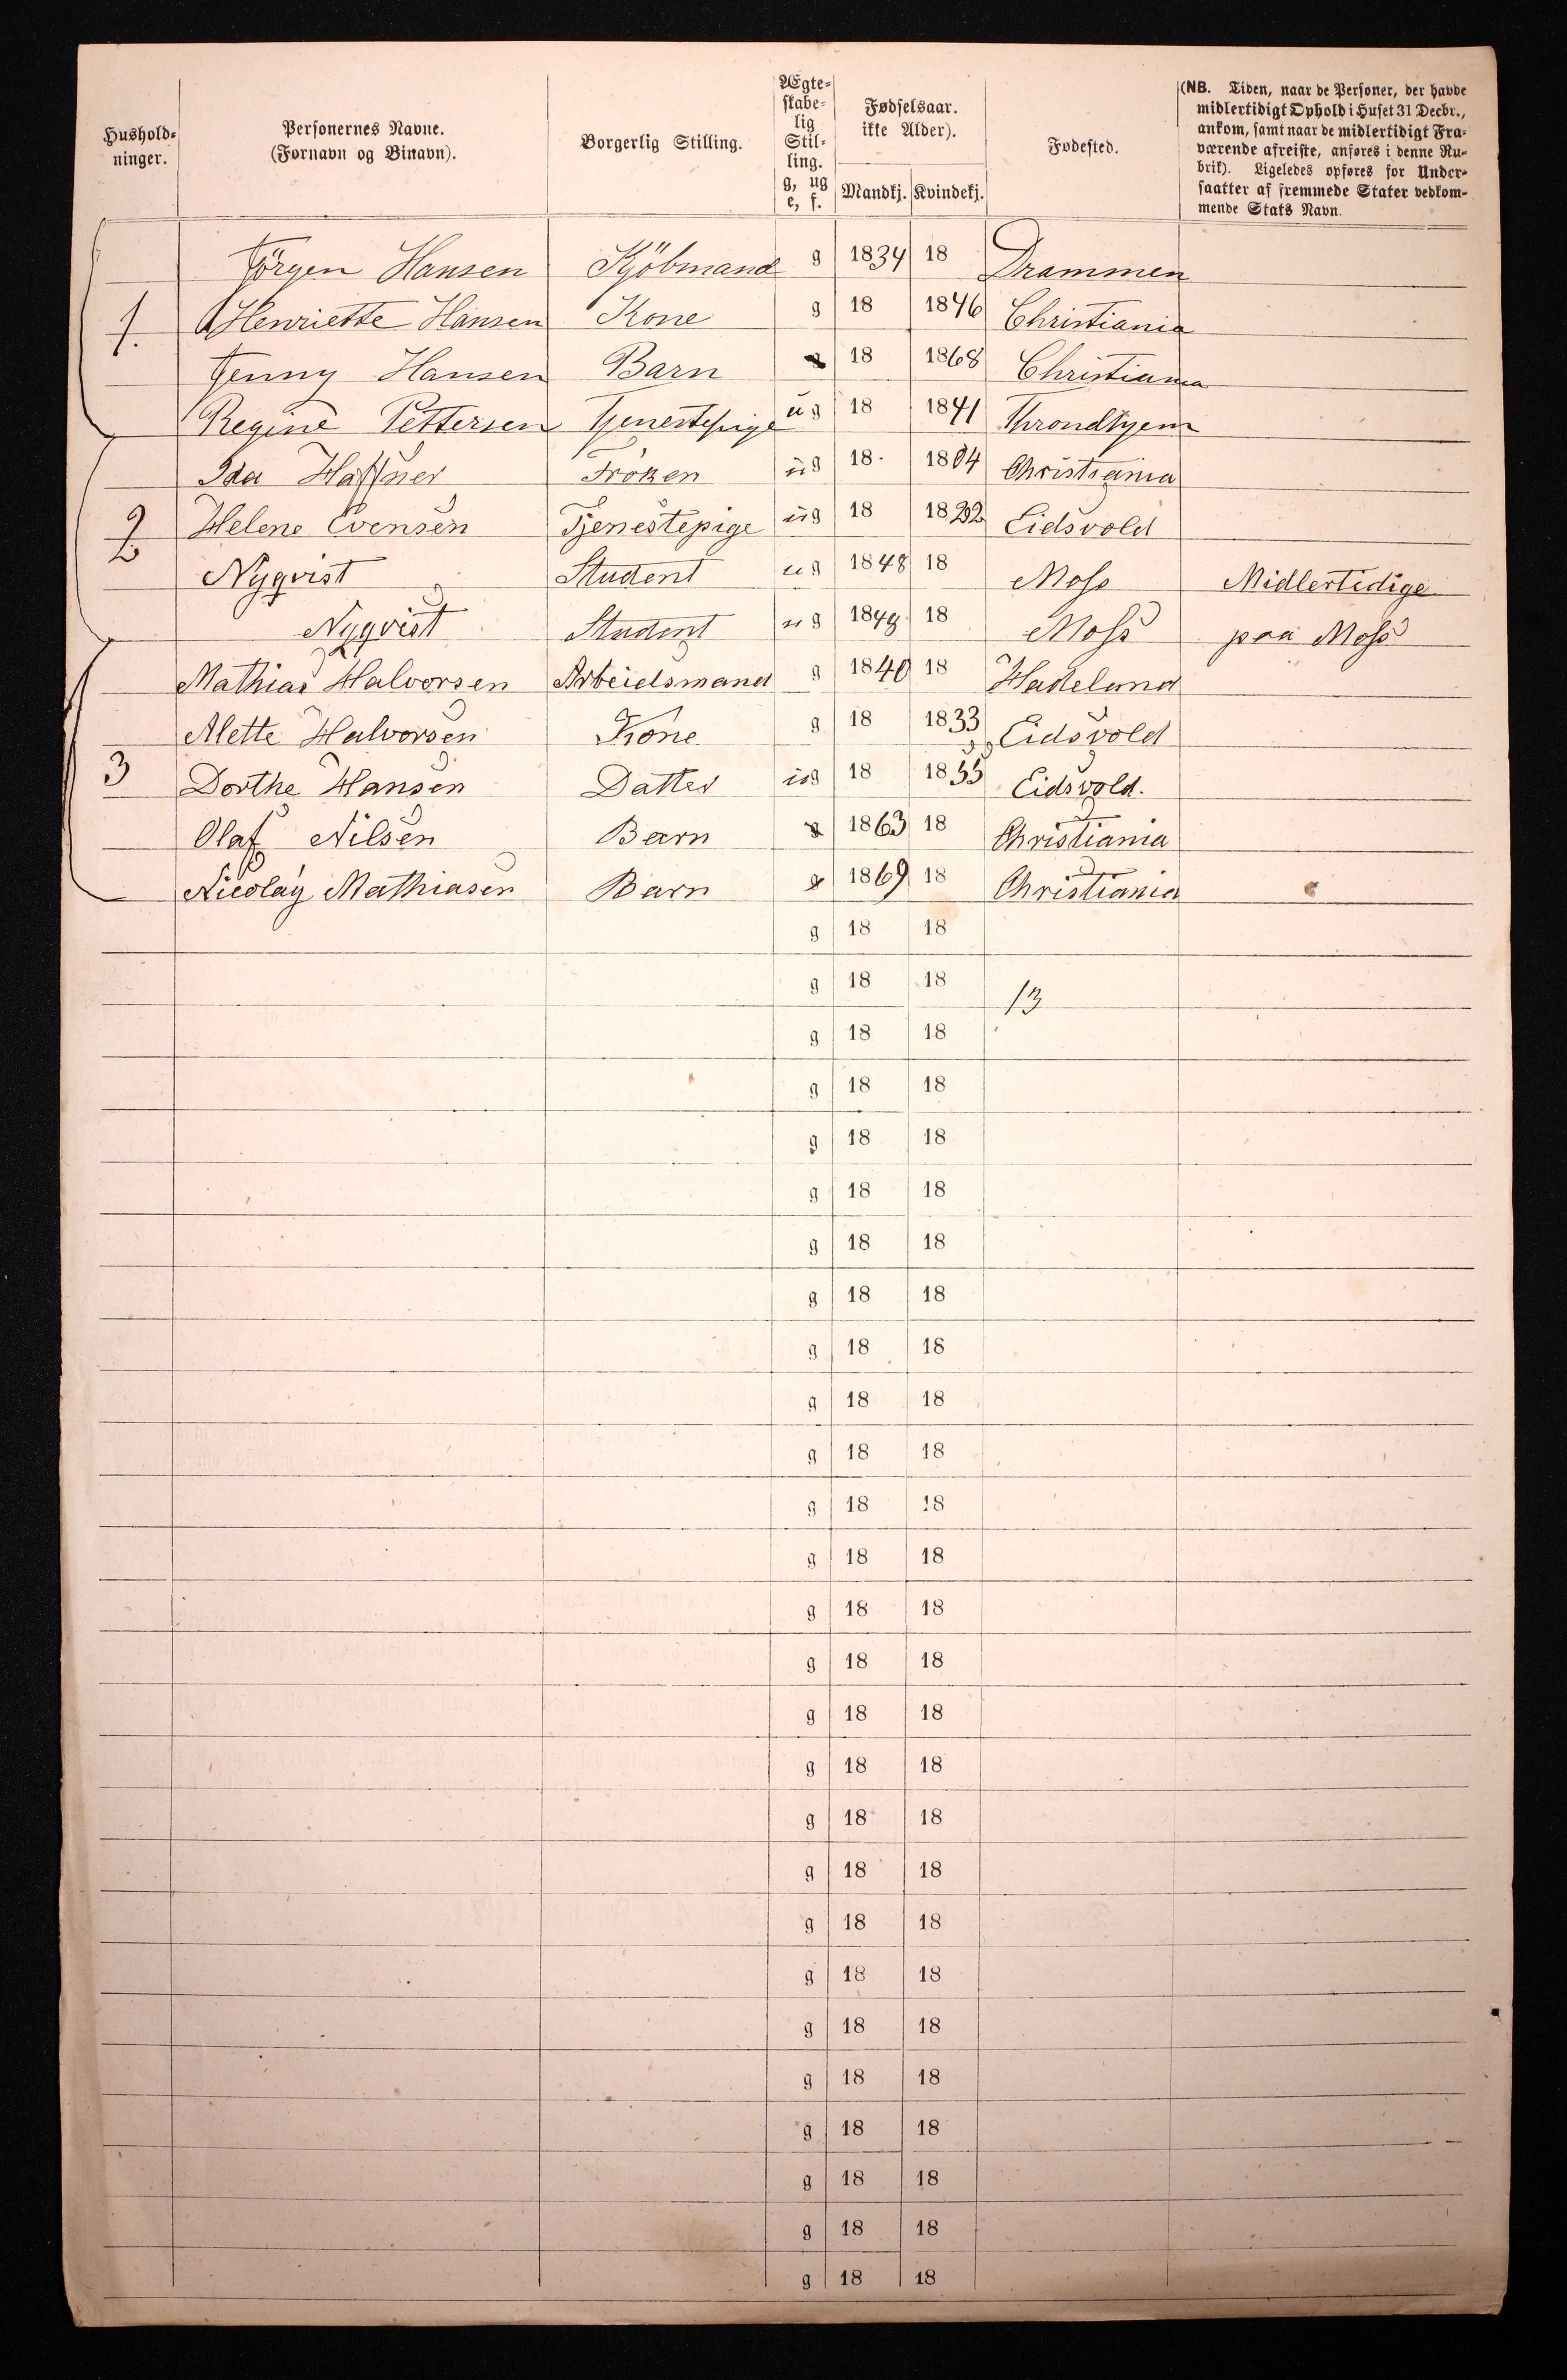 Hushold-
ninger.
Personernes Navne.
(Fornavn og Binavn).
Borgerlig Stilling.
Ægte-
skabe-
lig
Stil-
ling.
g, ug
e, f.
Fødselsaar.
ikke Alder).
Mandkj. Kvindekj.
Fødested.
(NB. Tiden, naar de Personer, der havde
midlertidigt Ophold i Huset 31 Decbr.,
ankom, samt naar de midlertidigt Fra-
værende afreiste, anføres i denne Ru-
brik). Ligeledes opføres for Under-
saatter af fremmede Stater vedkom-
mende Stats Navn.
Jörgen Hansen Kjöbmand g 1834 18 Drammen
1. Henriette Hansen Kone g 18 1846 Christiania
Jenny Hansen Barn g 18 1868 Christiania
Regine Pettersen Tjenestepige ug 18 1841 Throndhjem
Ida Haffner Fröken ug 18 1804 Christiania
2 Helene Evensen Tjenestepige ug 18 1832 Eidsvold
Nyqvist Student ug 1848 18 Moss Midlertidige
Nyqvist Student ug 1849 18 Moss paa Moss
Mathias Halvorsen Arbeidsmand g 1840 18 Hadeland
Alette Halvorsen Kone g 18 1833 Eidsvold
3 Dorthe Hansen Datter ug 18 1855 Eidsvold.
Olaf Nilsen Barn g 1863 18 Christiania
Nicolay Mathiasen Barn g 1869 18 Christiania
g 18 18
g 18 18 13
g 18 18
g 18 18
g 18 18
g 18 18
g 18 18
g 18 18
g 18 18
g 18 18
g 18 18
g 18 18
g 18 18
g 18 18
g 18 18
g 18 18
g 18 18
g 18 18
g 18 18
g 18 18
g 18 18
g 18 18
g 18 18
g 18 18
g 18 18
g 18 18
g 18 18